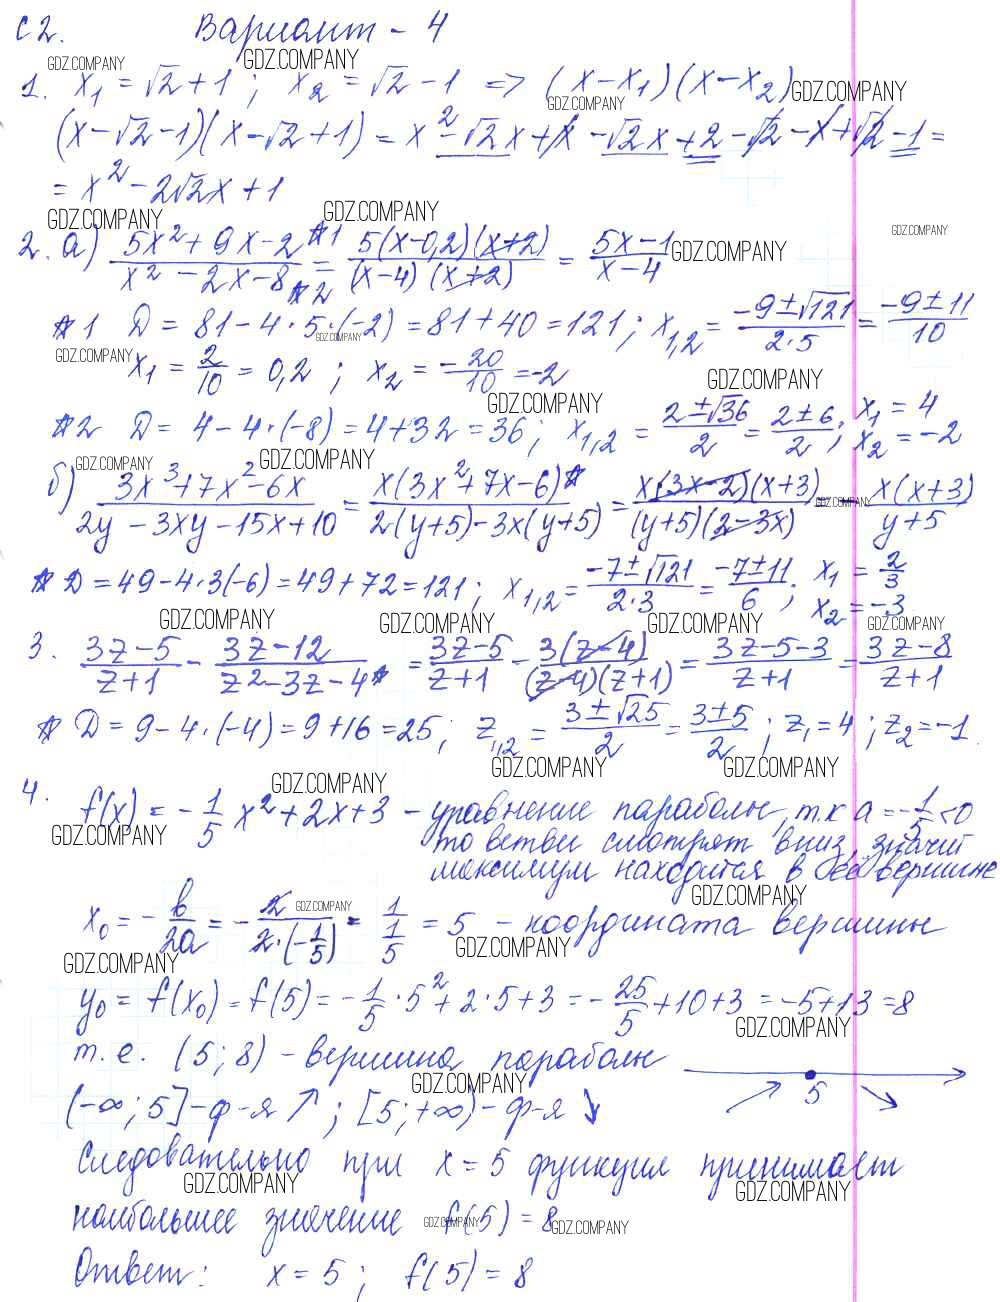 С2. Вариант - 4
1. x₁ = √2+1 ; x₂ = √2-1 => (x-x₁)(x-x₂)
(x-√2-1)(x-√2+1) = x² - √2x + x - √2x + 2 - √2 - x + √2 - 1 =
= x² - 2√2x + 1
2. а) (5x²+9x-2)*1 / (x²-2x-8)*2 = 5(x-0,2)(x+2) / (x-4)(x+2) = (5x-1)/(x-4)
*1 D = 81-4·5·(-2) = 81+40 = 121 ; x₁,₂ = (-9±√121)/(2·5) = (-9±11)/10
x₁ = 2/10 = 0,2 ; x₂ = -20/10 = -2
*2 D = 4-4·(-8) = 4+32 = 36 ; x₁,₂ = (2±√36)/2 = (2±6)/2 ; x₁ = 4
x₂ = -2
б) (3x³+7x²-6x)/(2y-3xy-15x+10) = x(3x²+7x-6)* / (2(y+5)-3x(y+5)) = x(3x-2)(x+3) / (y+5)(2-3x) = - x(x+3)/(y+5)
* D = 49-4·3(-6) = 49+72 = 121 ; x₁,₂ = (-7±√121)/(2·3) = (-7±11)/6 ; x₁ = 2/3
x₂ = -3
3. (3z-5)/(z+1) - (3z-12)/(z²-3z-4)* = (3z-5)/(z+1) - 3(z-4)/((z-4)(z+1)) = (3z-5-3)/(z+1) = (3z-8)/(z+1)
* D = 9-4·(-4) = 9+16 = 25 ; z₁,₂ = (3±√25)/2 = (3±5)/2 ; z₁ = 4 ; z₂ = -1
4. f(x) = -1/5 x² + 2x + 3 - уравнение параболы, т.к a = -1/5 < 0
то ветви смотрят вниз, значит
максимум находится в её вершине
x₀ = -b/2a = -2/(2·(-1/5)) = 1/(1/5) = 5 - координата вершины
y₀ = f(x₀) = f(5) = -1/5·5² + 2·5 + 3 = -25/5 + 10 + 3 = -5+13 = 8
т.е. (5; 8) - вершина параболы
5
(-∞; 5] - ф-я ↗ ; [5; +∞) - ф-я ↘
Следовательно при x = 5 функция принимает
наибольшее значение f(5) = 8
Ответ: x = 5 ; f(5) = 8
GDZ.COMPANY